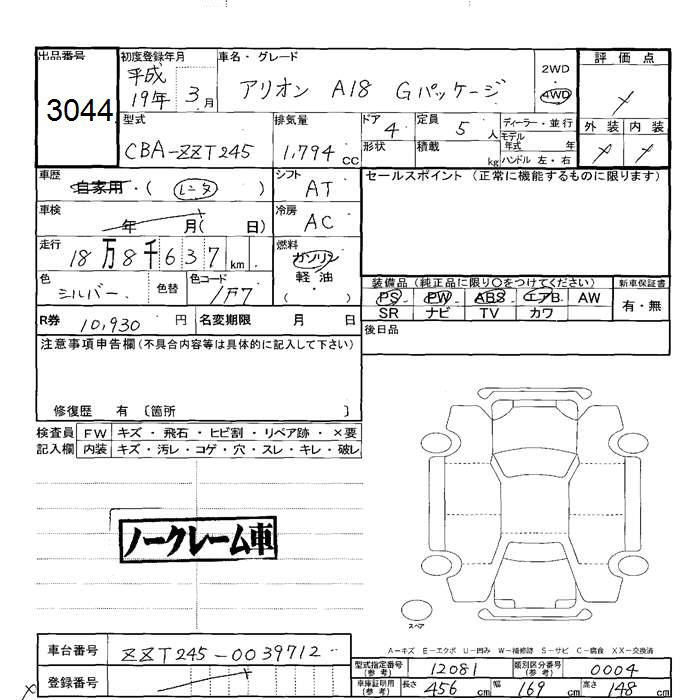 出品番号
3044
初度登録年月
平成
19年 3月
車名・グレード
アリオン A18 Gパッケージ
2WD
4WD
評価点
外装 内装
型式
CBA-ZZT245
排気量
1,794 cc
ドア
4
形状
定員
5 人
積載
kg
ディーラー・並行
モデル
年式 年
ハンドル 左・右
車歴
自家用・(レンタ)
シフト
AT
セールスポイント (正常に機能するものに限ります)
車検
年 月( 日)
冷房
AC
走行
18万8千637 km
燃料
ガソリン
軽油
( )
色
シルバー
色替
色コード
1F7
装備品 (純正品に限り○をつけてください)
PS PW ABS エアB AW
SR ナビ TV カワ
新車保証書
有・無
R券 10,930 円
名変期限 月 日
後日品
注意事項申告欄(不具合内容等は具体的に記入して下さい)
修復歴 有 〔箇所 〕
検査員
記入欄
FW キズ・飛石・ヒビ割・リペア跡・×要
内装 キズ・汚レ・コゲ・穴・スレ・キレ・破レ
ノークレーム車
スペア
A-キズ E-エクボ U-凹み W-補修跡 S-サビ C-腐食 XX-交換済
車台番号
ZZT245-0039712
登録番号
型式指定番号
(参考)
12081
類別区分番号
(参考)
0004
車庫証明用
(参考)
長さ 456 cm 幅 169 cm 高さ 148 cm